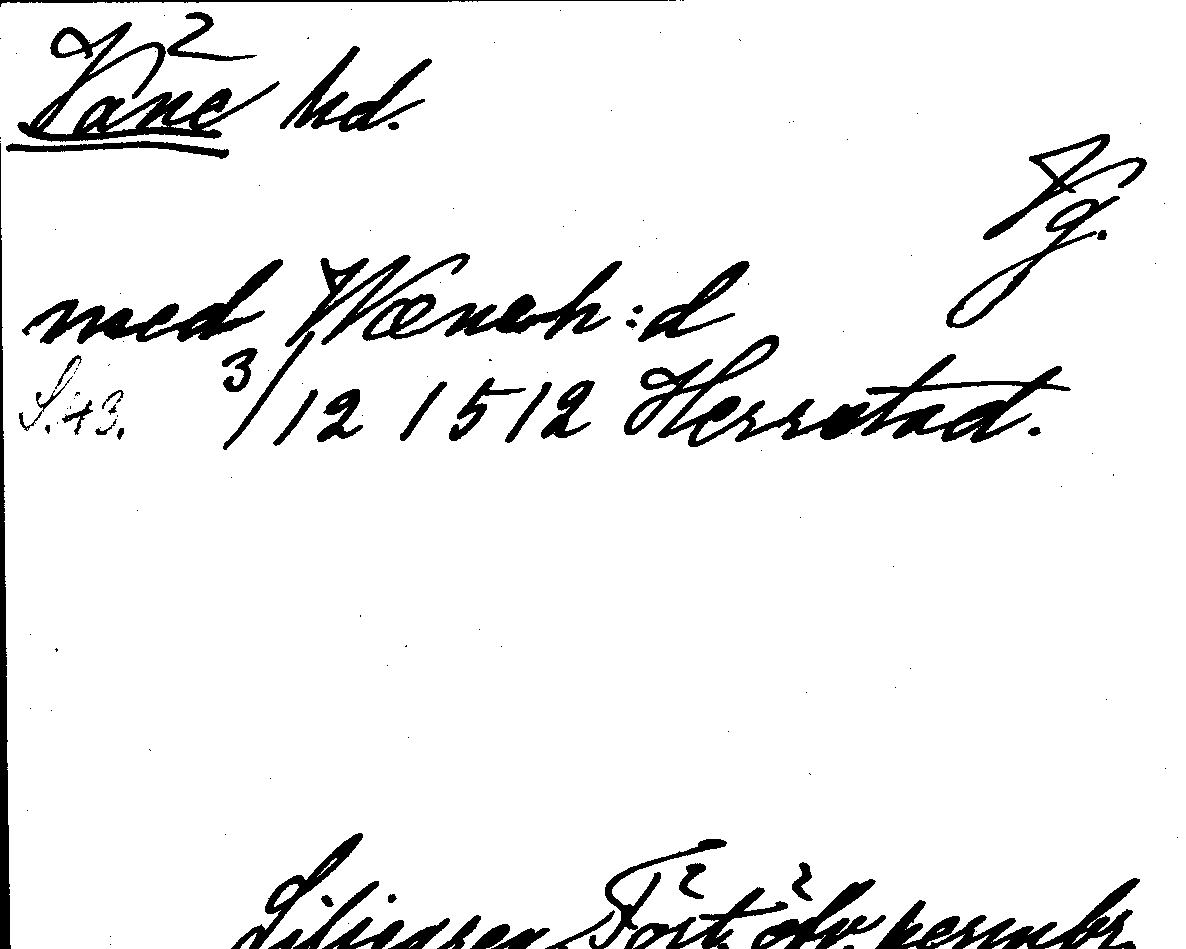 Väne hd.
Vg.
med Wæneh:d
S.43. 3/12 1512 Herrstad.
Liliegren Fört. öfv. permbr